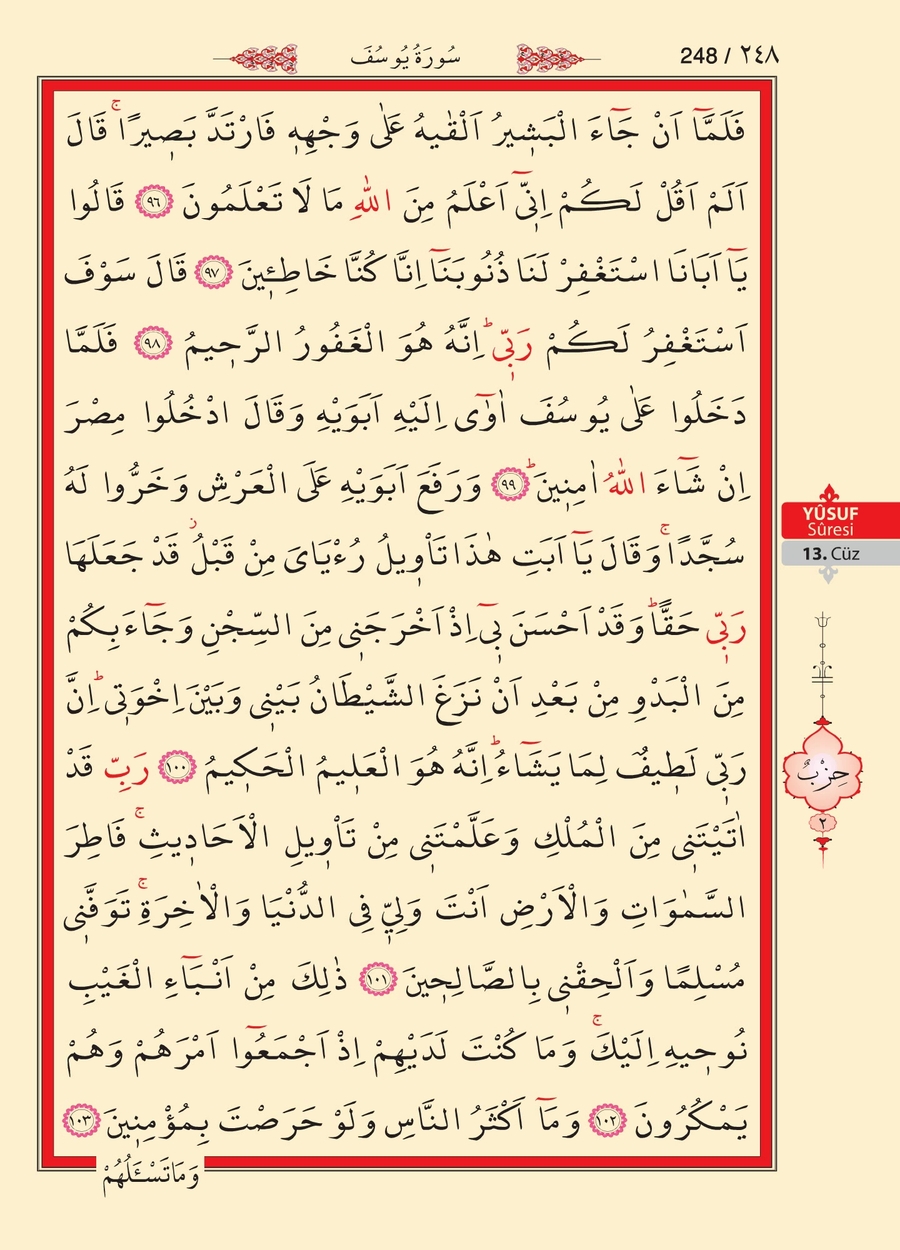 سُورَةُ يُوسُفَ
248 / ٢٤٨
فَلَمَّٓا اَنْ جَٓاءَ الْبَشٖيرُ اَلْقٰيهُ عَلٰى وَجْهِهٖ فَارْتَدَّ بَصٖيرًاۚ قَالَ
اَلَمْ اَقُلْ لَكُمْ اِنّٖٓي اَعْلَمُ مِنَ اللّٰهِ مَا لَا تَعْلَمُونَ ﴿٩٦﴾ قَالُوا
يَٓا اَبَانَا اسْتَغْفِرْ لَنَا ذُنُوبَنَٓا اِنَّا كُنَّا خَاطِـٖٔينَ ﴿٩٧﴾ قَالَ سَوْفَ
اَسْتَغْفِرُ لَكُمْ رَبّٖيؕ اِنَّهُ هُوَ الْغَفُورُ الرَّحٖيمُ ﴿٩٨﴾ فَلَمَّا
دَخَلُوا عَلٰى يُوسُفَ اٰوٰٓى اِلَيْهِ اَبَوَيْهِ وَقَالَ ادْخُلُوا مِصْرَ
اِنْ شَٓاءَ اللّٰهُ اٰمِنٖينَؕ ﴿٩٩﴾ وَرَفَعَ اَبَوَيْهِ عَلَى الْعَرْشِ وَخَرُّوا لَهُ
سُجَّدًاۚ وَقَالَ يَٓا اَبَتِ هٰذَا تَاْوٖيلُ رُءْيَايَ مِنْ قَبْلُؗ قَدْ جَعَلَهَا
رَبّٖي حَقًّاؕ وَقَدْ اَحْسَنَ بٖٓي اِذْ اَخْرَجَنٖي مِنَ السِّجْنِ وَجَٓاءَ بِكُمْ
مِنَ الْبَدْوِ مِنْ بَعْدِ اَنْ نَزَغَ الشَّيْطَانُ بَيْنٖي وَبَيْنَ اِخْوَتٖيؕ اِنَّ
رَبّٖي لَطٖيفٌ لِمَا يَشَٓاءُؕ اِنَّهُ هُوَ الْعَلٖيمُ الْحَكٖيمُ ﴿١٠٠﴾ رَبِّ قَدْ
اٰتَيْتَنٖي مِنَ الْمُلْكِ وَعَلَّمْتَنٖي مِنْ تَاْوٖيلِ الْاَحَادٖيثِۚ فَاطِرَ
السَّمٰوَاتِ وَالْاَرْضِ اَنْتَ وَلِيّٖ فِي الدُّنْيَا وَالْاٰخِرَةِۚ تَوَفَّنٖي
مُسْلِمًا وَاَلْحِقْنٖي بِالصَّالِحٖينَ ﴿١٠١﴾ ذٰلِكَ مِنْ اَنْبَٓاءِ الْغَيْبِ
نُوحٖيهِ اِلَيْكَۚ وَمَا كُنْتَ لَدَيْهِمْ اِذْ اَجْمَعُٓوا اَمْرَهُمْ وَهُمْ
يَمْكُرُونَ ﴿١٠٢﴾ وَمَٓا اَكْثَرُ النَّاسِ وَلَوْ حَرَصْتَ بِمُؤْمِنٖينَ ﴿١٠٣﴾
وَمَا تَسْـَٔلُهُمْ
YÛSUF
Sûresi
13. Cüz
حِزْبٌ
٢